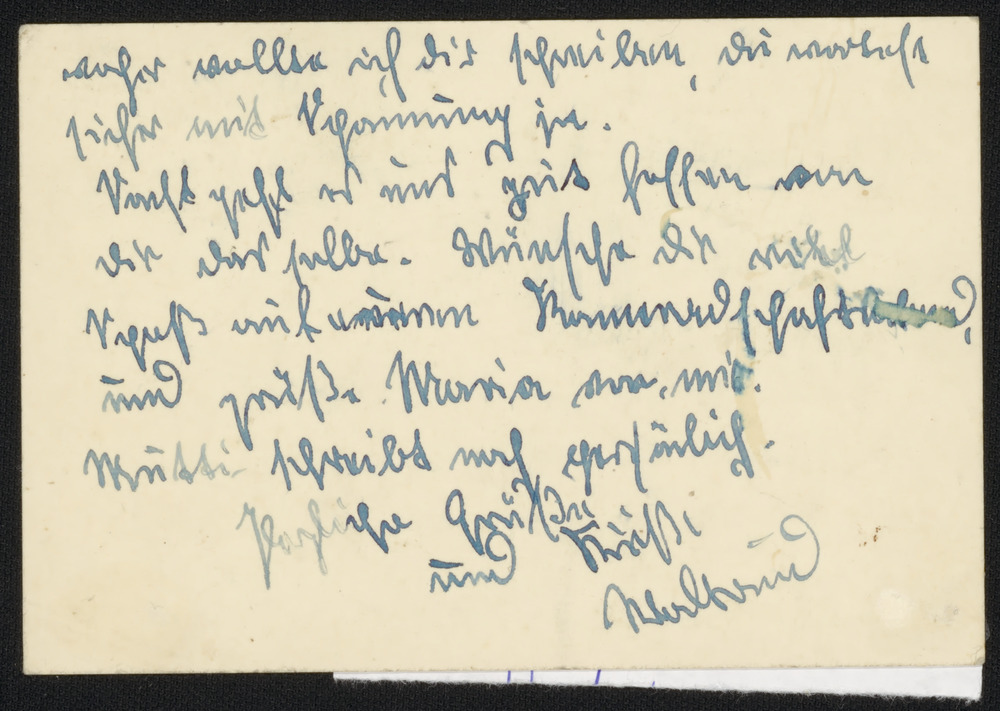 woher wollte ich dir schreiben, du wartest
sicher mit Spannung ja.
Sonst geht es uns gut hoffen von
dir das selbe. Wünsche dir viel
Spaß auf euren Kameradschaftsabend,
und grüße Maria von mir.
Mutti schreibt noch persönlich.
Herzliche Grüße
und Küße
Waltraud